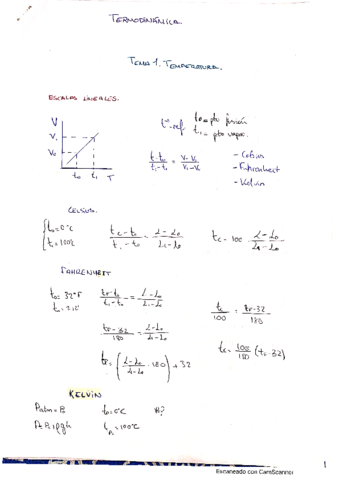 TERMODINÁMICA.
TEMA 1. TEMPERATURA.
ESCALAS LINEALES.
V
V₁
V₀
t₀ t₁ T
tª ref. t₀ = pto fusión
t₁ = pto vapor.
(t-t₀)/(t₁-t₀) = (V-V₀)/(V₁-V₀)
- Celsius
- Fahrenheit
- Kelvin
CELSIUS.
t₀=0ºC
t₁=100ºC
(tc-t₀)/(t₁-t₀) = (L-L₀)/(L₁-L₀)
tc = 100 · (L-L₀)/(L₁-L₀)
FAHRENHEIT
t₀= 32ºF
t₁ = 212
(tF-t₀)/(t₁-t₀) = (L-L₀)/(L₁-L₀)
(tF-32)/180 = (L-L₀)/(L₁-L₀)
tc/100 = (tF-32)/180
tF = ((L-L₀)/(L₁-L₀) · 180) + 32
tc = 100/180 (tF-32)
KELVIN
Patm = P₀ t₀=0ºC H?
t = 100ºC
1
Escaneado con CamScanner